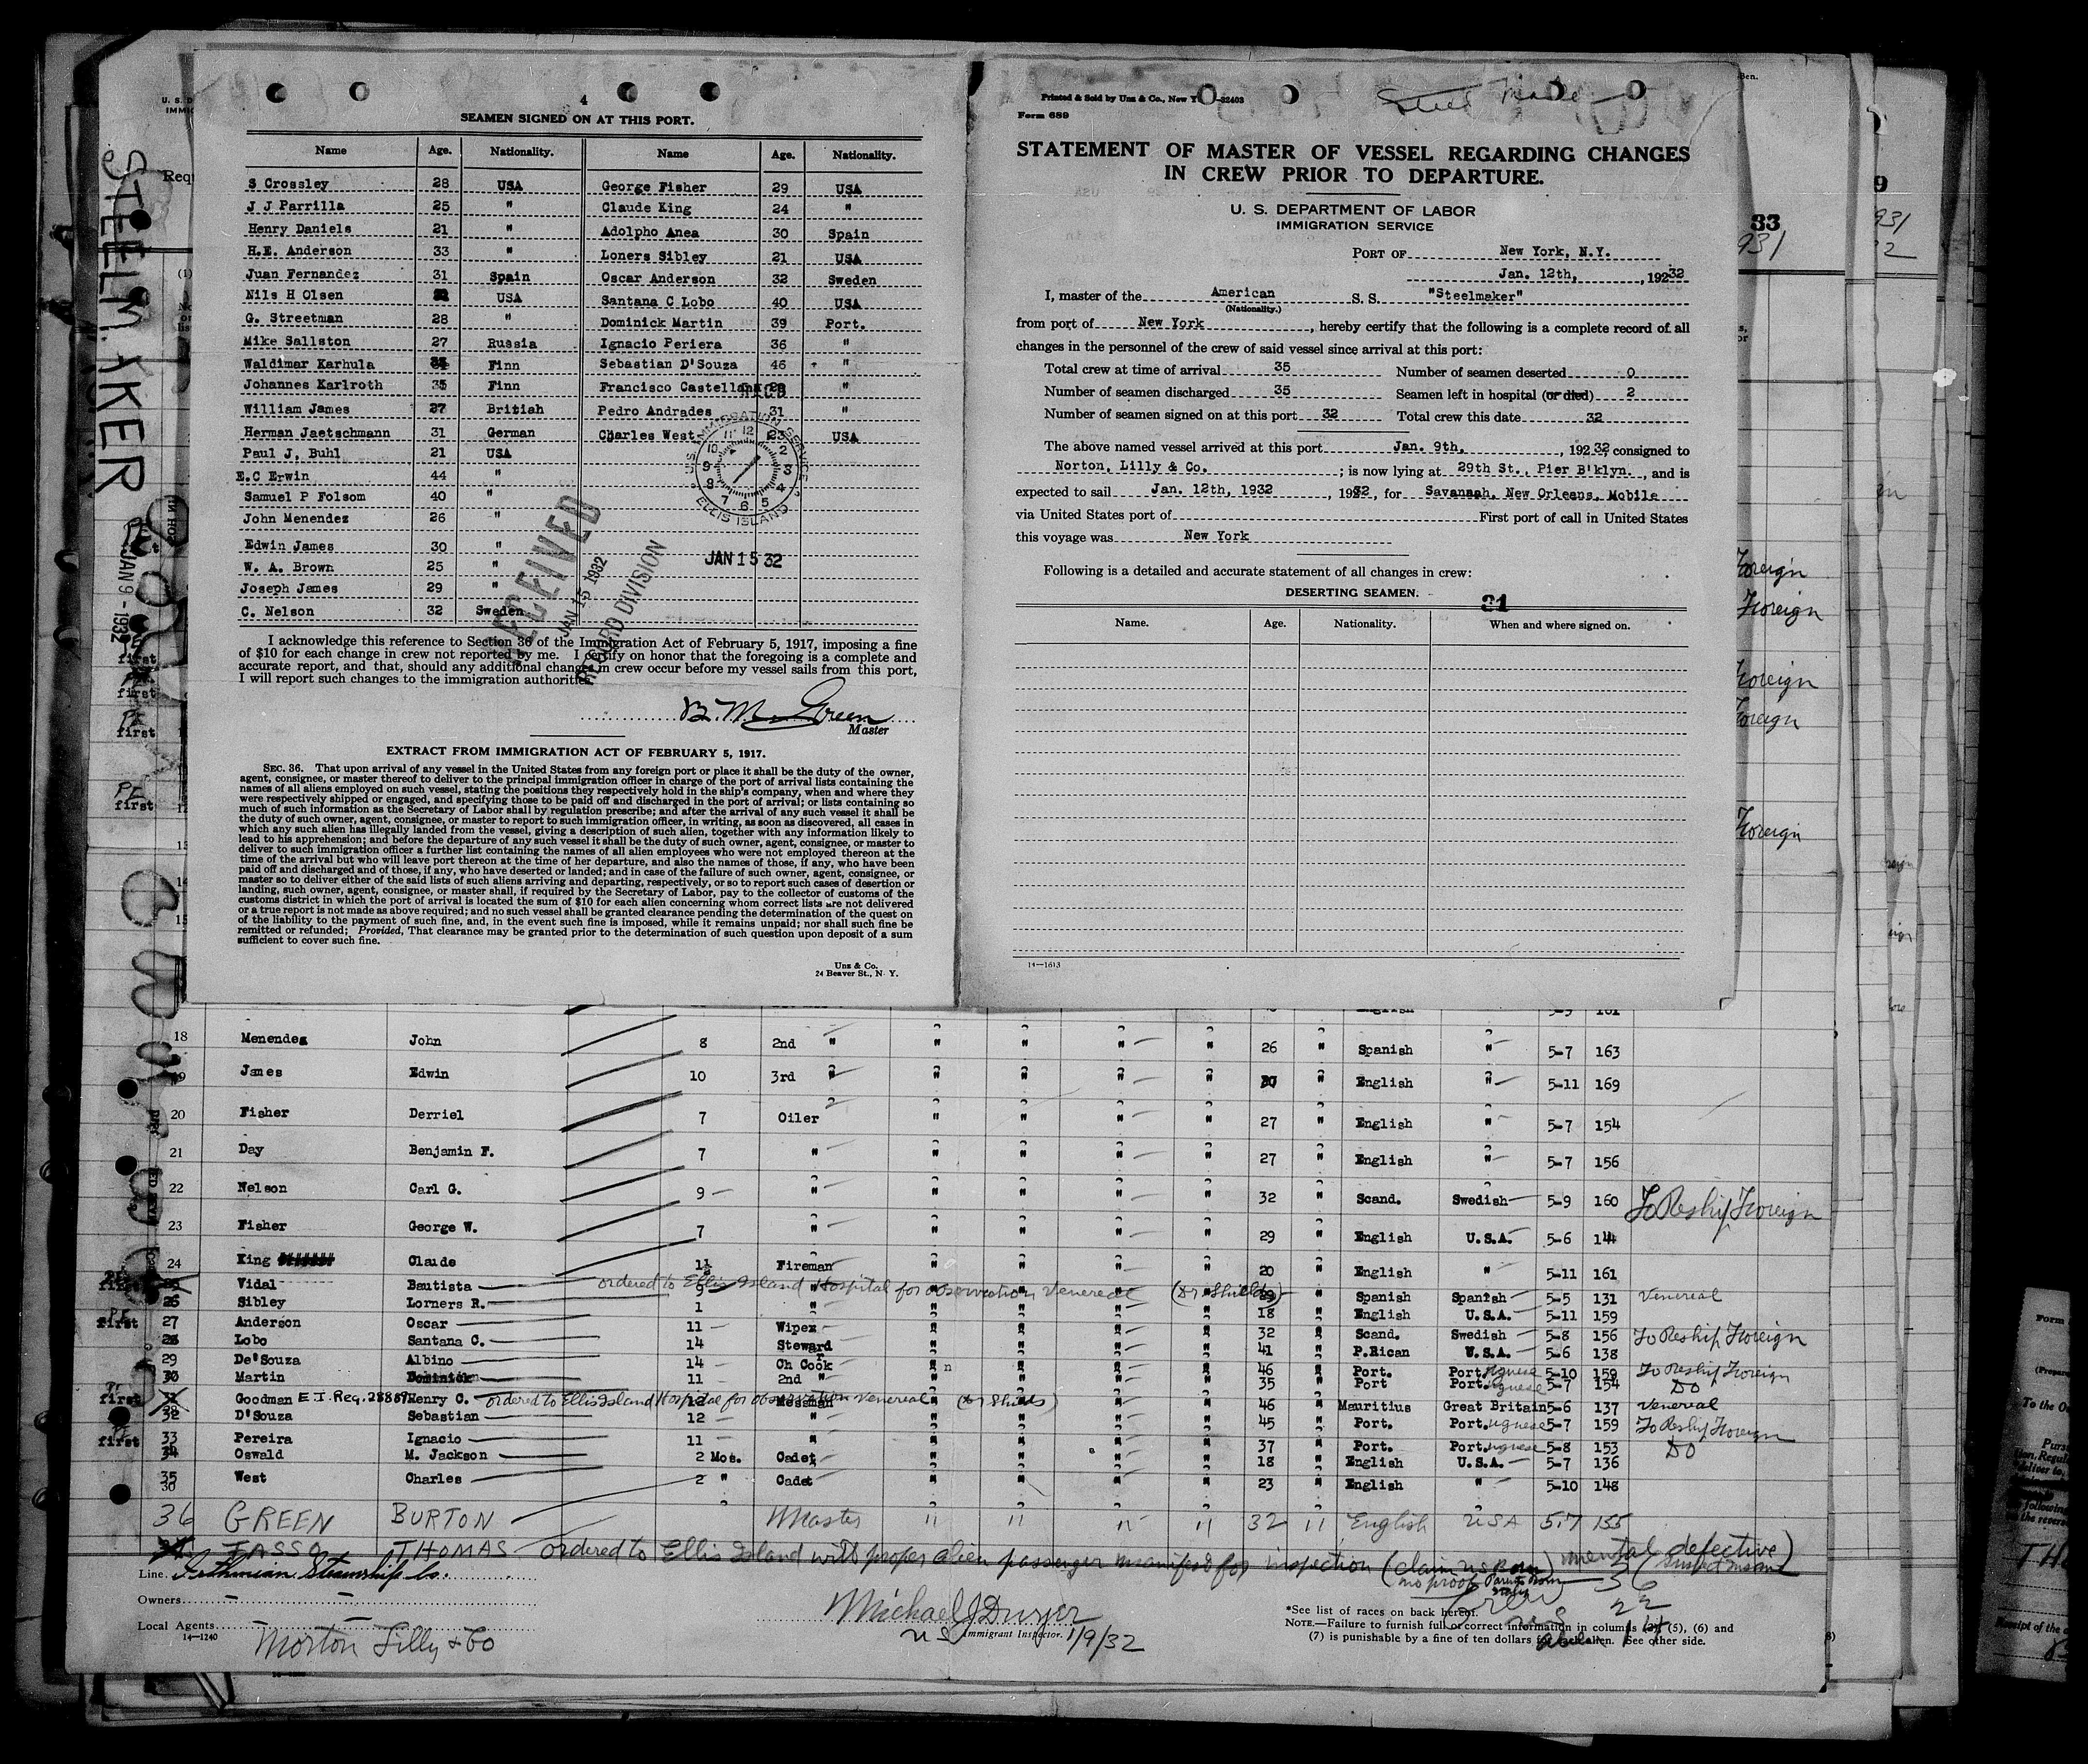 4
SEAMEN SIGNED ON AT THIS PORT.
Name Age. Nationality. Name Age. Nationality.
S Crossley 28 USA George Fisher 29 USA
J J Parrilla 25 " Claude King 24 "
Henry Daniels 21 " Adolpho Anea 30 Spain
H.E. Anderson 33 " Loners Sibley 21 USA
Juan Fernandez 31 Spain Oscar Anderson 32 Sweden
Nils H Olsen USA Santana C Lobo 40 USA
G. Streetman 28 " Dominick Martin 39 Port.
Mike Sallston 27 Russia Ignacio Periera 36 "
Waldimar Karhula Finn Sebastian D'Souza 46 "
Johannes Karlroth 35 Finn Francisco "
William James 27 British Pedro Andrades 31 "
Herman Jaetschmann 31 German Charles West 23 USA
Paul J. Buhl 21 USA
E.C Erwin 44 "
Samuel P Folsom 40 "
John Menendez 26 "
Edwin James 30 "
W. A. Brown 25 "
Joseph James 29 "
C. Nelson 32 Sweden
U.S. IMMIGRATION SERVICE
ELLIS ISLAND
JAN 15 32
RECEIVED
JAN 15 1932
RECORD DIVISION
I acknowledge this reference to Section 36 of the Immigration Act of February 5, 1917, imposing a fine
of $10 for each change in crew not reported by me. I certify on honor that the foregoing is a complete and
accurate report, and that, should any additional change in crew occur before my vessel sails from this port,
I will report such changes to the immigration authorities.
B. M. Green
Master
EXTRACT FROM IMMIGRATION ACT OF FEBRUARY 5, 1917.
SEC. 36. That upon arrival of any vessel in the United States from any foreign port or place it shall be the duty of the owner,
agent, consignee, or master thereof to deliver to the principal immigration officer in charge of the port of arrival lists containing the
names of all aliens employed on such vessel, stating the positions they respectively hold in the ship's company, when and where they
were respectively shipped or engaged, and specifying those to be paid off and discharged in the port of arrival; or lists containing so
much of such information as the Secretary of Labor shall by regulation prescribe; and after the arrival of any such vessel it shall be
the duty of such owner, agent, consignee, or master to report to such immigration officer, in writing, as soon as discovered, all cases in
which any such alien has illegally landed from the vessel, giving a description of such alien, together with any information likely to
lead to his apprehension; and before the departure of any such vessel it shall be the duty of such owner, agent, consignee, or master to
deliver to such immigration officer a further list containing the names of all alien employees who were not employed thereon at the
time of the arrival but who will leave port thereon at the time of her departure, and also the names of those, if any, who have been
paid off and discharged and of those, if any, who have deserted or landed; and in case of the failure of such owner, agent, consignee, or
master so to deliver either of the said lists of such aliens arriving and departing, respectively, or so to report such cases of desertion or
landing, such owner, agent, consignee, or master shall, if required by the Secretary of Labor, pay to the collector of customs of the
customs district in which the port of arrival is located the sum of $10 for each alien concerning whom correct lists are not delivered
or a true report is not made as above required; and no such vessel shall be granted clearance pending the determination of the quest on
of the liability to the payment of such fine, and, in the event such fine is imposed, while it remains unpaid; nor shall such fine be
remitted or refunded; Provided, That clearance may be granted prior to the determination of such question upon deposit of a sum
sufficient to cover such fine.
Unz & Co.
24 Beaver St., N. Y.
Printed & Sold by Unz & Co., New Y -32403
Form 689
Steel Maker
STATEMENT OF MASTER OF VESSEL REGARDING CHANGES
IN CREW PRIOR TO DEPARTURE.
U. S. DEPARTMENT OF LABOR
IMMIGRATION SERVICE
PORT OF New York, N.Y.
Jan. 12th, , 192 32
I, master of the American S. S. "Steelmaker"
(Nationality.)
from port of New York , hereby certify that the following is a complete record of all
changes in the personnel of the crew of said vessel since arrival at this port:
Total crew at time of arrival 35 Number of seamen deserted 0
Number of seamen discharged 35 Seamen left in hospital (or died) 2
Number of seamen signed on at this port 32 Total crew this date 32
The above named vessel arrived at this port Jan. 9th. , 192 32 consigned to
Norton, Lilly & Co. ; is now lying at 29th St., Pier B'klyn. , and is
expected to sail Jan. 12th, 1932 , 1932, for Savannah, New Orleans, Mobile
via United States port of First port of call in United States
this voyage was New York
Following is a detailed and accurate statement of all changes in crew:
DESERTING SEAMEN.
Name. Age. Nationality. When and where signed on.
14—1613
STEELMAKER
JAN 9 - 1932
33
931
Foreign
Foreign
Foreign
Foreign
Foreign
18 Menendez John 8 2nd " " " " " 26 " Spanish " 5-7 163
19 James Edwin 10 3rd " " " " " " English " 5-11 169
20 Fisher Derriel 7 Oiler " " " " 27 " English " 5-7 154
21 Day Benjamin F. 7 " " " " " 27 " English " 5-7 156
22 Nelson Carl G. 9 " " " " " 32 " Scand. Swedish 5-9 160 To Reship Foreign
23 Fisher George W. 7 " " " " " 29 " English U.S.A. 5-6 144
24 King Claude 1½ Fireman " " " " 20 " English " 5-11 161
first Vidal Bautista 9 ordered to Ellis Island Hospital for observation Venereal (Dr Shields) Spanish Spanish 5-5 131 Venereal
26 Sibley Lorners R. 1 " " " " " 18 " English U.S.A. 5-11 159
first 27 Anderson Oscar 11 Wiper " " " " 32 " Scand. Swedish 5-8 156 To Reship Foreign
28 Lobo Santana C. 14 Steward " " " " 41 " P.Rican U.S.A. 5-6 138
29 De'Souza Albino 14 Ch Cook " " " " 46 " Port. Portugnese 5-10 159 To Reship Foreign
30 Martin Dominick 11 2nd " " " " " 35 " Port Portugnese 5-7 154 DO
first Goodman E.I. Req. 28887 Henry C. 12 Messman ordered to Ellis Island Hospital for observation Venereal (Dr Shields) 46 " Mauritius Great Britain 5-6 137 Venereal
32 D'Souza Sebastian 12 " " " " " 45 " Port. Portugnese 5-7 159 To Reship Foreign
first 33 Pereira Ignacio 11 " " " " " 37 " Port. Portugnese 5-8 153 DO
34 Oswald M. Jackson 2 Mos. Cadet " " " " 18 " English U.S.A. 5-7 136
35 West Charles 2 " Cadet " " " " 23 " English " 5-10 148
36 GREEN BURTON Master " " " " 32 " English USA 5.7 155
TASSO THOMAS ordered to Ellis Island with proper alien passenger manifest for inspection (claim US Born no proof Parents Born Italy) mental defective)
Line. Isthmian Steamship Co.
Owners
Local Agents Norton Lilly & Co
14—1240
Michael J Dwyer
US Immigrant Inspector. 1/9/32
*See list of races on back hereof.
NOTE.—Failure to furnish full or correct information in columns (3), (5), (6) and
(7) is punishable by a fine of ten dollars for each alien. See other side.